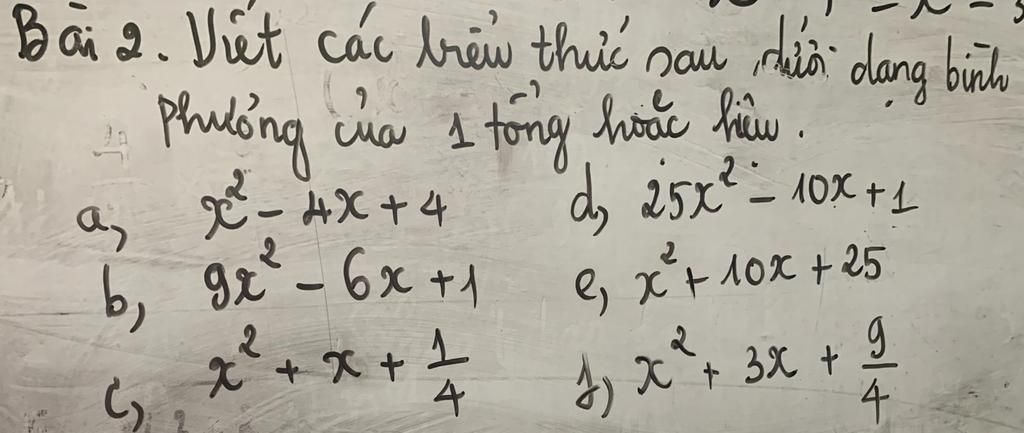 - x - 3
Bài 2. Viết các biểu thức sau dưới dạng bình
phương của 1 tổng hoặc hiệu.
a, x² - 4x + 4
b, 9x² - 6x + 1
c, x² + x + 1/4
d, 25x² - 10x + 1
e, x² + 10x + 25
f) x² + 3x + 9/4